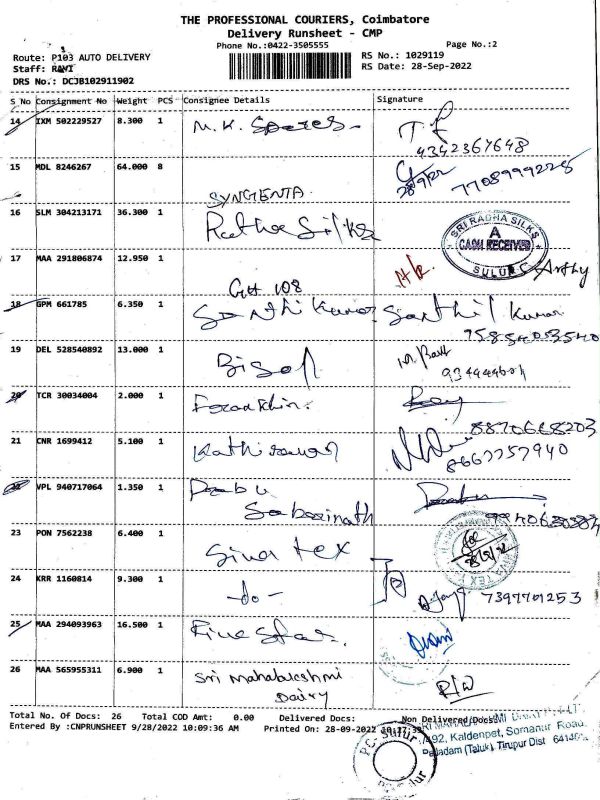 THE PROFESSIONAL COURIERS, Coimbatore
Delivery Runsheet - CMP
Phone No.:0422-3505555
Page No.:2
Route: P103 AUTO DELIVERY
RS No.: 1029119
Staff: RAVI
RS Date: 28-Sep-2022
DRS No.: DCJB102911902
S No Consignment No Weight PCS Consignee Details Signature
14 IXM 502229527 8.300 1 M.K. Spares T
9342367648
15 MDL 8246267 64.000 8 7708999225
SYNGENTA
16 SLM 304213171 36.300 1 Radha Silks
SRI RADHA SILKS
A
CASH RECEIVED
SULUR
17 MAA 291806874 12.950 1 Arthy
GH 108
18 GPM 661785 6.350 1 Santhil Kumar
19 DEL 528540892 13.000 1 Bison
20 TCR 30034004 2.000 1
8870668203
21 CNR 1699412 5.100 1 Kathiravan
8667757940
22 VPL 940717064 1.350 1 Babu
Sabarinath
23 PON 7562238 6.400 1 Siva tex
24 KRR 1160814 9.300 1 -do-
7399701253
25 MAA 294093963 16.500 1 Five Star
26 MAA 565955311 6.900 1 Sri Mahalakshmi
Dairy
Total No. Of Docs: 26 Total COD Amt: 0.00 Delivered Docs: Non Delivered Docs:
Entered By :CNPRUNSHEET 9/28/2022 10:09:36 AM Printed On: 28-09-2022
4/92, Kaldenpet, Somanur Road,
Palladam (Taluk), Tirupur Dist
PC-Sulur